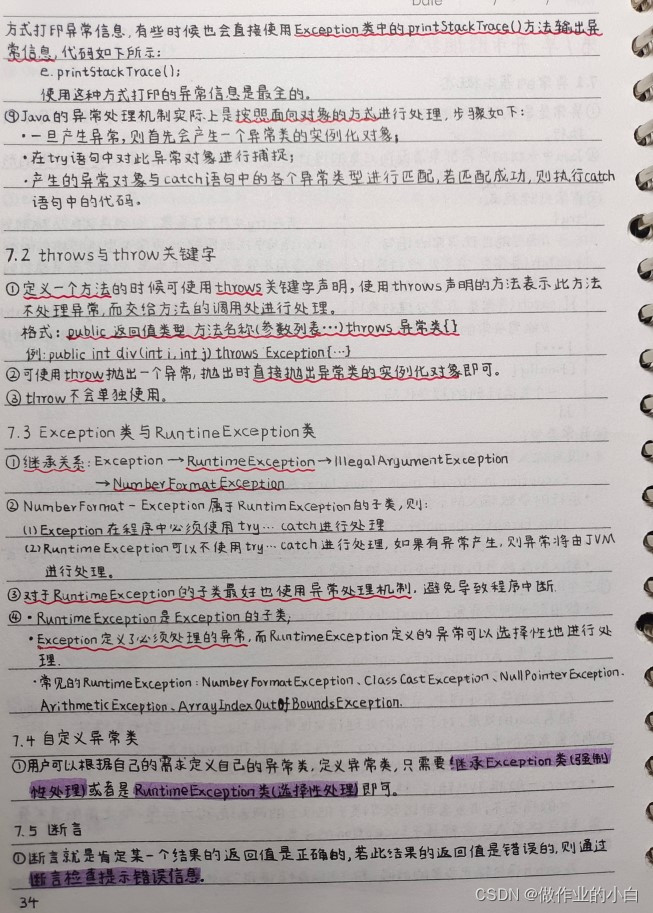 Date
方式打印异常信息，有些时候也会直接使用Exception类中的printStackTrace()方法输出异
常信息，代码如下所示：
e.printStackTrace();
使用这种方式打印的异常信息是最全的。
⑨Java的异常处理机制实际上是按照面向对象的方式进行处理，步骤如下：
·一旦产生异常，则首先会产生一个异常类的实例化对象；
·在try语句中对此异常对象进行捕捉；
·产生的异常对象与catch语句中的各个异常类型进行匹配，若匹配成功，则执行catch
语句中的代码。
7.2 throws与throw关键字
①定义一个方法的时候可使用throws关键字声明，使用throws声明的方法表示此方法
不处理异常，而交给方法的调用处进行处理。
格式：public 返回值类型 方法名称(参数列表…)throws 异常类{}
例：public int div(int i,int j) throws Exception{…}
②可使用throw抛出一个异常，抛出时直接抛出异常类的实例化对象即可。
③throw不会单独使用。
7.3 Exception类与RuntineException类
①继承关系：Exception→RuntimeException→IllegalArgumentException
→NumberFormatException
②NumberFormat-Exception属于RuntimException的子类，则：
(1)Exception在程序中必须使用try…catch进行处理
(2)Runtime Exception可以不使用try…catch进行处理，如果有异常产生，则异常将由JVM
进行处理。
③对于RuntimeException的子类最好也使用异常处理机制，避免导致程序中断.
④·RuntimeException是Exception的子类；
·Exception定义了必须处理的异常，而RuntimeException定义的异常可以选择性地进行处
理.
·常见的RuntimeException：NumberFormatException、ClassCastException、NullPointerException.
ArithmeticException、ArrayIndexOutOfBoundsException.
7.4 自定义异常类
①用户可以根据自己的需求定义自己的异常类，定义异常类，只需要继承Exception类(强制
性处理)或者是RuntimeException类(选择性处理)即可。
7.5 断言
①断言就是肯定某一个结果的返回值是正确的，若此结果的返回值是错误的，则通过
断言检查提示错误信息.
34
CSDN @做作业的小白